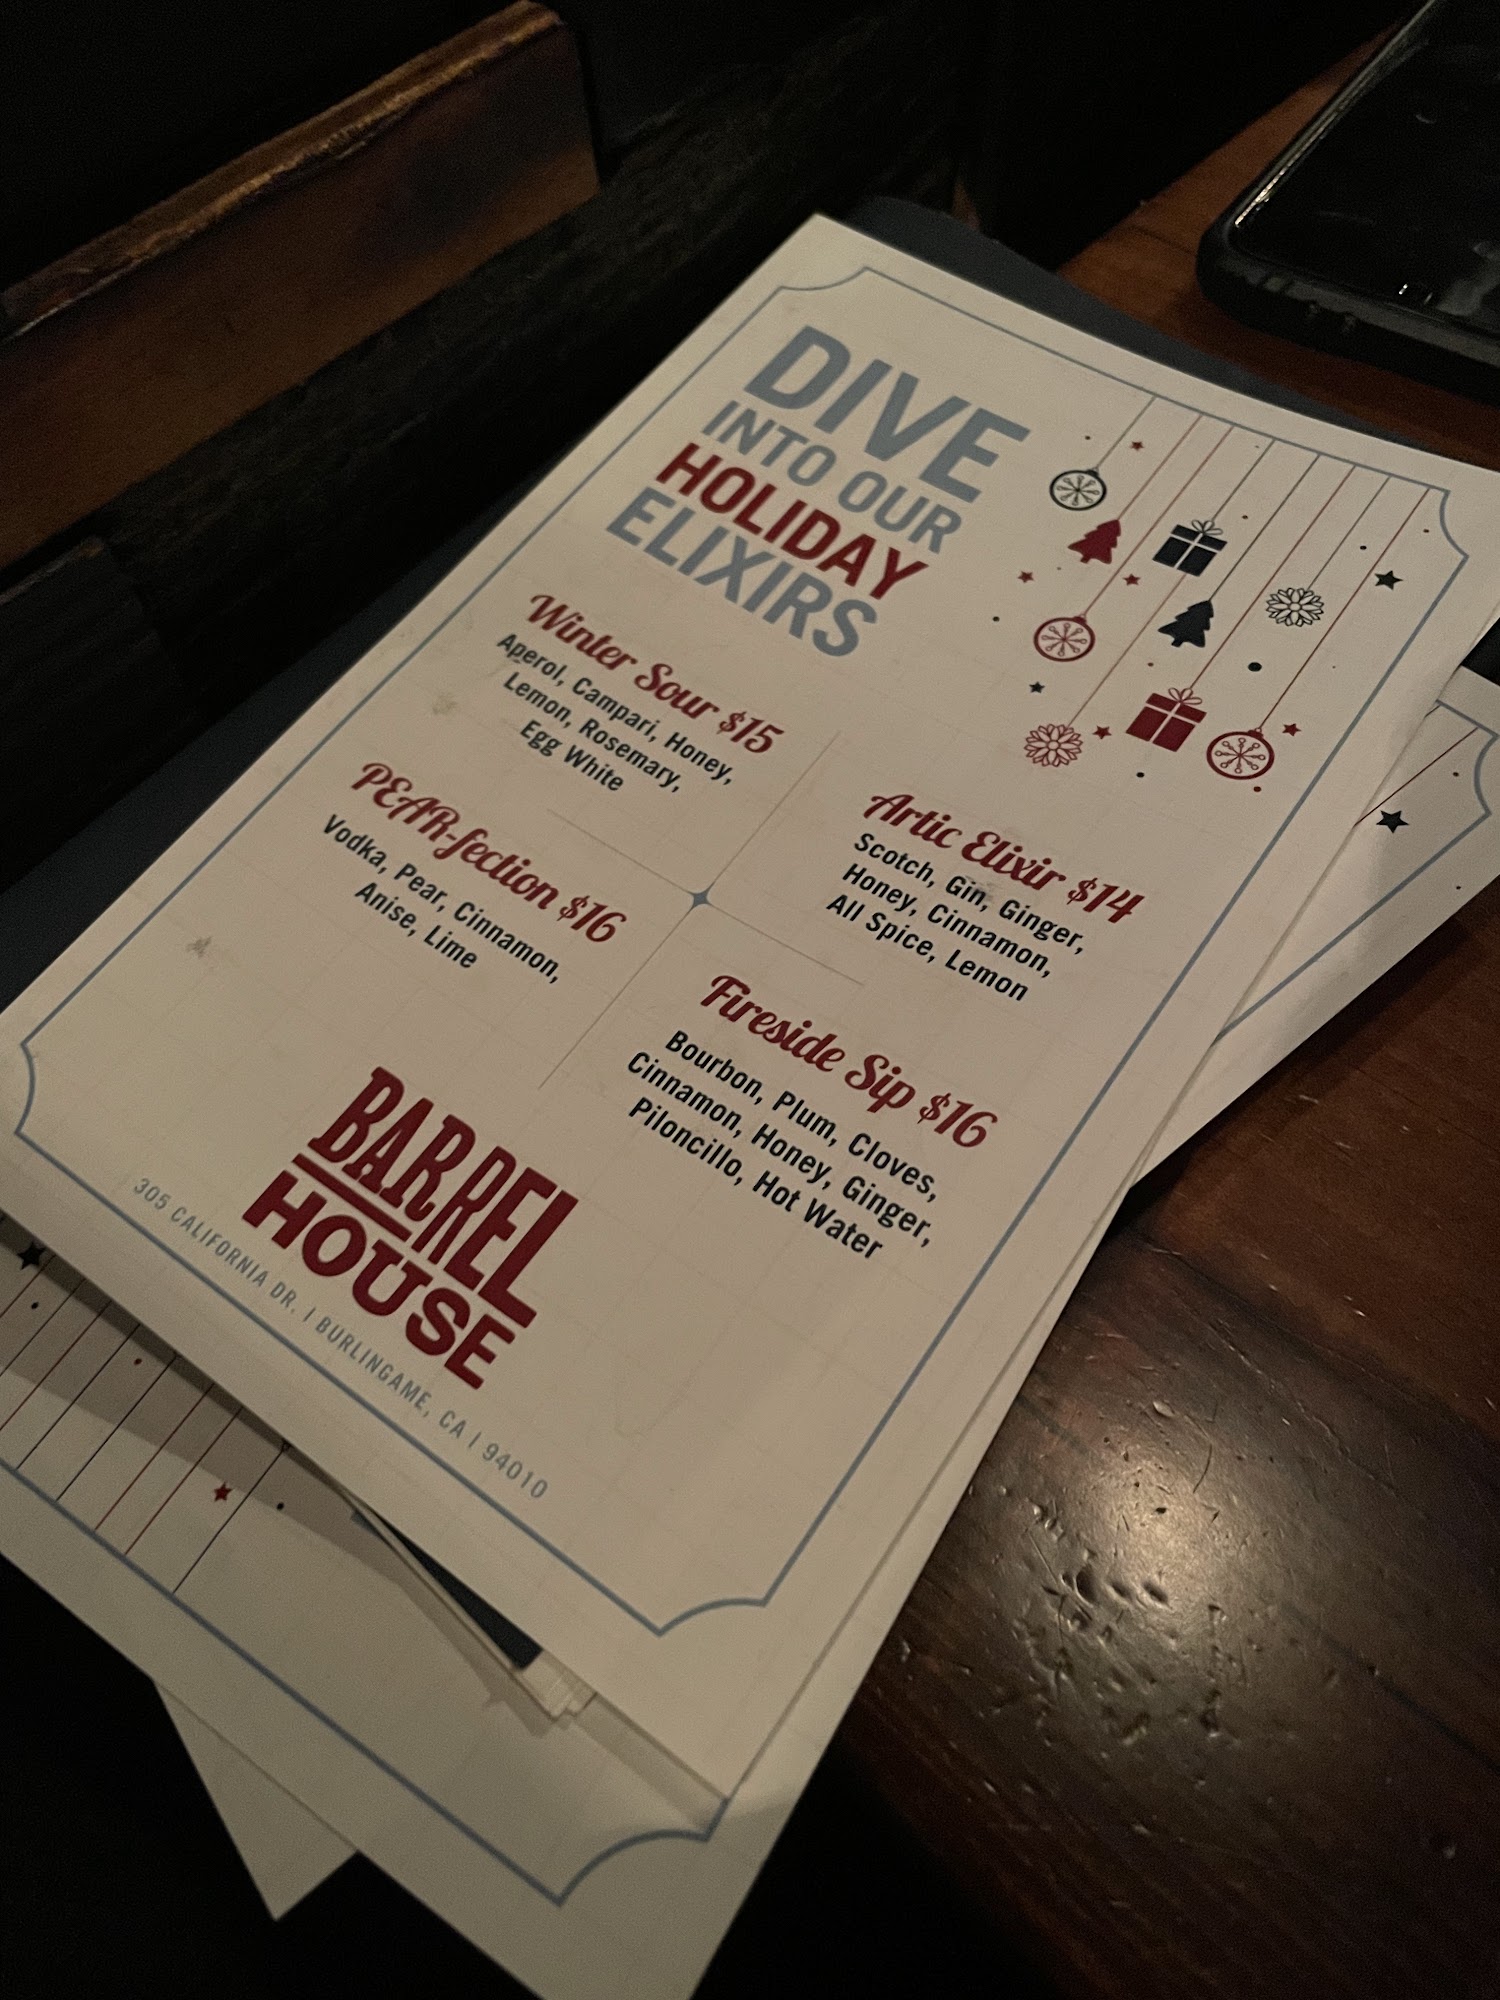 DIVE
INTO OUR
HOLIDAY
ELIXIRS
Winter Sour $15
Aperol, Campari, Honey,
Lemon, Rosemary,
Egg White
Artic Elixir $14
Scotch, Gin, Ginger,
Honey, Cinnamon,
All Spice, Lemon
PEAR-fection $16
Vodka, Pear, Cinnamon,
Anise, Lime
Fireside Sip $16
Bourbon, Plum, Cloves,
Cinnamon, Honey, Ginger,
Piloncillo, Hot Water
BARREL
HOUSE
305 CALIFORNIA DR. | BURLINGAME, CA | 94010